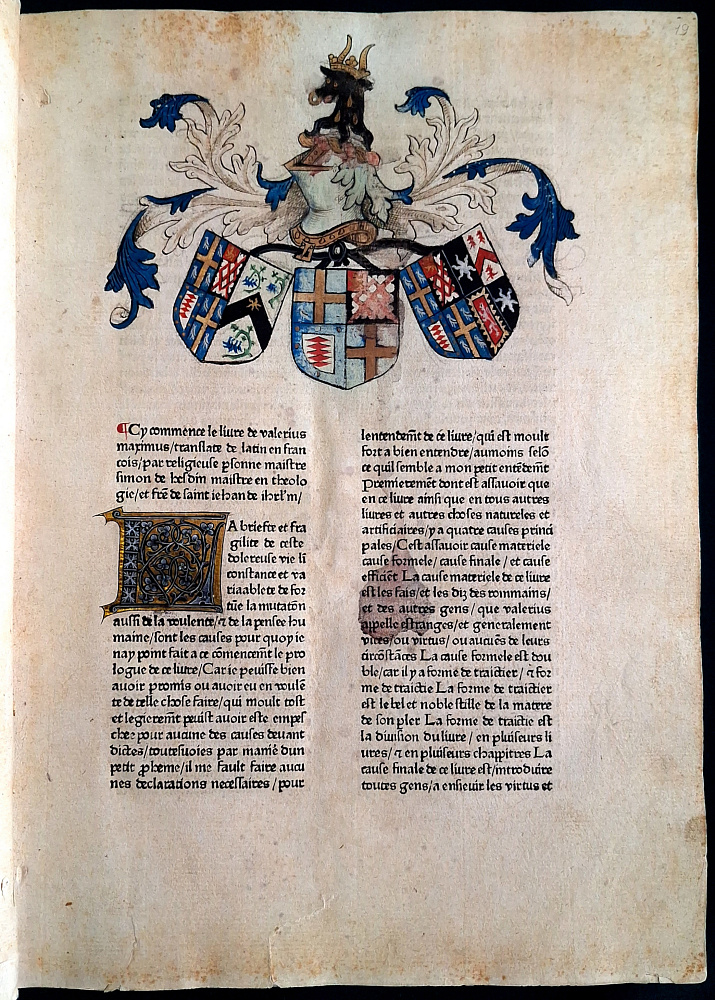 19
¶Cy commence le liure de valerius
maximus/translate de latin en fran
cois/par religieuse psonne maistre
simon de hesdin maistre en theolo
gie/et frē de saint iehan de ihrlm̄/
LA briefte et fra
gilite de ceste
dolereuse vie li
constance et va
riaablete de for
tūe la mutatōn
aussi de la voulente/⁊ de la pensee hu
maine/sont les causes pour quoy ie
nay point fait a ce cōmencemt̄ le pro
logue de ce liure/Car ie peusse bien
auoir promis ou auoir eu en voulē
te de telle chose faire/qui moult tost
et legieremt̄ peust auoir este empes
chez pour aucune des causes deuant
dictes/toutesuoies par manie᷑ dun
petit p̄heme/il me fault faire aucu
nes declarations necessaires/pour
lentendemt̄ de ce liure/qui est moult
fort a bien entendre/aumoins selō
ce quil semble a mon petit entēdemt̄
Premieremēt dont est assauoir que
en ce liure ainsi que en tous autres
liures et autres choses natureles et
artificiaires/y a quatre causes princi
pales/Cest assauoir cause materiele
cause formele/cause finale/et cause
efficiēt La cause materiele de ce liure
est les fais/et les diz des rommains/
et des autres gens/que valerius
appelle estranges/et generalement
vices/ou virtus/ou aucūes de leurs
circōstāces La cause formele est dou
ble/car il y a forme de traictier/⁊ for
me de traictie La forme de traictier
est le bel et noble stille de la matere
de son pler La forme de traictie est
la diuision du liure/en pluiseurs li
ures/⁊ en pluiseurs chappitres La
cause finale de ce liure est/introduire
toutes gens/a ensieuir les virtus et